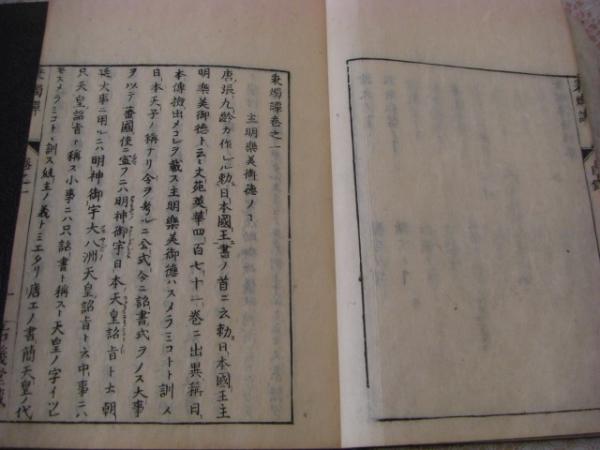 秉燭譚巻之一
主明樂美御德ノコ
唐張九齡カ作レル勅日本國王書ノ首ニ云勅日本國王主
明樂美御德ト云々文苑英華四百七十一巻ニ出異稱日
本傳撿出メコレヲ載ス主明樂美御德ハスメラミコトト訓メ
日本天子ノ稱ナリ今ヲ考ルニ公式令ニ詔書式ヲノス大事
ヲ以テ蕃國使ニ宣フニハ明神御宇日本天皇詔旨ト云朝
廷大事ニ用ルニハ明神御宇大八洲天皇詔旨ト云中事ニハ
只天皇詔旨ト稱ス小事ニハ只詔書ト稱スト天皇ノ字イツレ
モスメラミコトト訓ス統主ノ義トミエタリ唐エノ書簡天皇ノ代
秉燭譚
巻之一
一